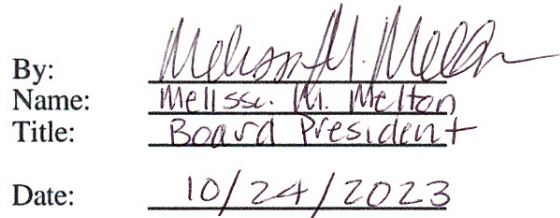 By: Melissa M. Melton
Name: Melissa M. Melton
Title: Board President
Date: 10/24/2023